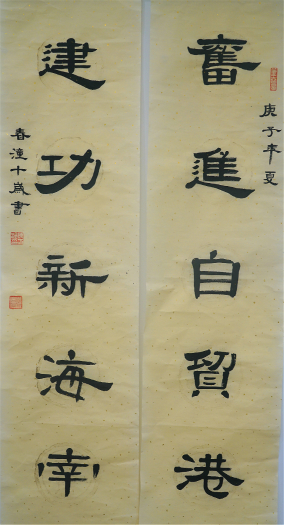 奮進自貿港
庚子年夏
建功新海南
春潼十歲書